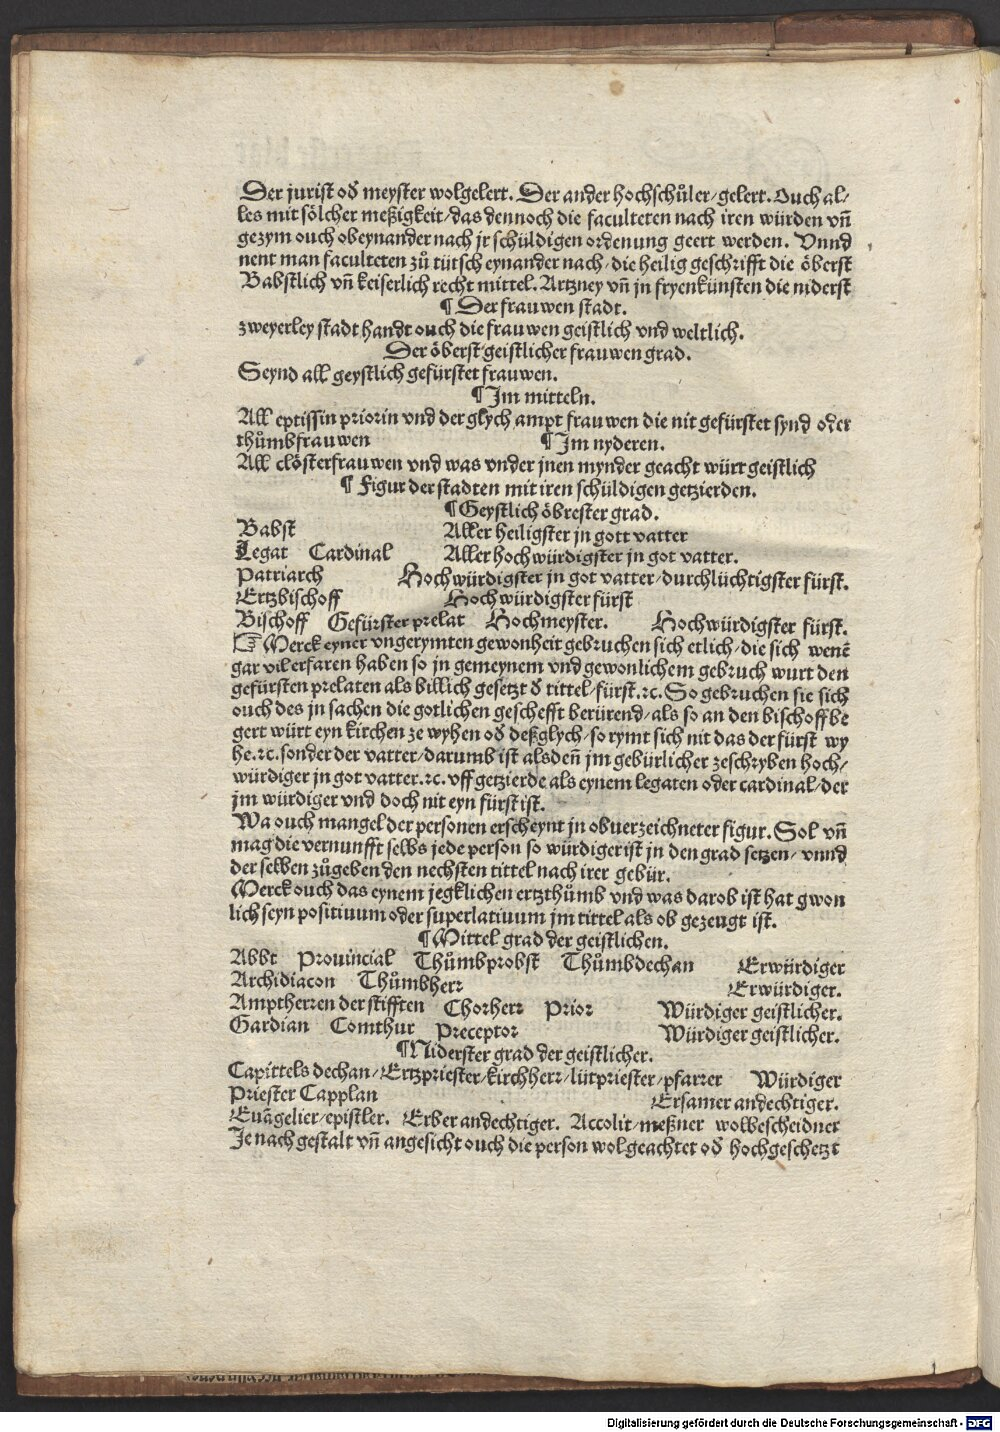 Der jurist od̄ meyster wolgelert. Der ander hochschůler/gelert. Ouch al/
les mit sölcher meßigkeit/das dennoch die faculteten nach iren würden vn̄
gezym ouch obeynander nach jr schüldigen ordenung geert werden. Vnnd
nent man faculteten zů tütsch eynander nach/die heilig geschrifft die öberst
Babstlich vn̄ keiserlich recht mittel. Artzney vn̄ jn fryenkünsten die niderst
¶ Der frauwen stadt.
zweyerley stadt handt ouch die frauwen geistlich vnd weltlich.
Der öberst geistlicher frauwen grad.
Seynd all geystlich gefürstet frauwen.
¶ Im mitteln.
All eptissin priorin vnd der glych ampt frauwen die nit gefürstet synd oder
thůmbfrauwen ¶ Im nyderen.
All clösterfrauwen vnd was vnder jnen mynder geacht würt geistlich
¶ Figur der stadten mit iren schüldigen getzierden.
¶ Geystlich öbrester grad.
Babst Aller heiligster jn gott vatter
Legat Cardinal Aller hochwürdigster jn got vatter.
Patriarch Hochwürdigster jn got vatter/durchlüchtigster fürst.
Ertzbischoff Hochwürdigster fürst
Bischoff Gefürster prelat Hochmeyster. Hochwürdigster fürst.
☞ Merck eyner vngerymten gewonheit gebruchen sich etlich/die sich wenē
gar vil erfaren haben so jn gemeynem vnd gewonlichem gebruch wurt den
gefürsten prelaten als billich gesetzt d̄ tittel/fürst.ꝛc. So gebruchen sie sich
ouch des jn sachen die gotlichen geschefft berürend/als so an den bischoff be
gert würt eyn kirchen ze wyhen od̄ deßglych/so rymt sich nit das der fürst wy
he.ꝛc. sonder der vatter/darumb ist alsden̄ jm gebürlicher zeschryben hoch/
würdiger jn got vatter.ꝛc. vff getzierde als eynem legaten oder cardinal/der
jm würdiger vnd doch nit eyn fürst ist.
Wa ouch mangel der personen erscheynt jn obuerzeichneter figur. Sol vn̄
mag die vernunfft selbs jede person so würdiger ist jn den grad setzen/vnnd
der selben zůgeben den nechsten tittel nach irer gebür.
Merck ouch das eynem jegklichen ertzthůmb vnd was darob ist hat gwon
lich seyn positiuum oder superlatiuum jm tittel als ob gezeugt ist.
¶ Mittel grad der geistlichen.
Abbt Prouincial Thůmbprobst Thůmbdechan Erwürdiger
Archidiacon Thůmbherr Erwürdiger.
Amptherren der stifften Chorherr Prior Würdiger geistlicher.
Gardian Comthur Preceptor Würdiger geistlicher.
¶ Niderster grad der geistlicher.
Capittels dechan/Ertzpriester/kirchherr/lütpriester/pfarrer Würdiger
Priester Capplan Ersamer andechtiger.
Euāgelier/epistler. Erber andechtiger. Accolit/meßner wolbescheidner
Je nach gestalt vn̄ angesicht ouch die person wolgeachtet od̄ hochgeschetzt
Digitalisierung gefördert durch die Deutsche Forschungsgemeinschaft - DFG